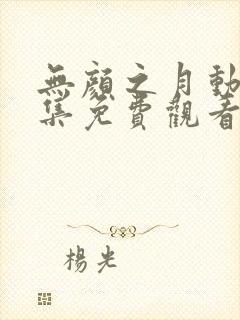 無顏之月動
集免費觀看
楊光